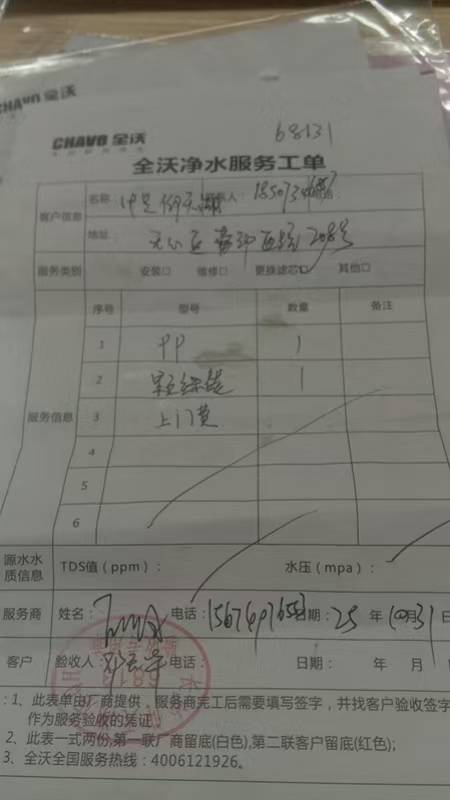 CHAVO 全沃
CHAVO 全沃
68131
全沃净水服务工单
客户信息
名称
地址:
天心区
208号
服务类别 安装□ 维修□ 更换滤芯□ 其他□
服务信息
序号 型号 数量 备注
1 PP 1
2 1
3 上门费
4
5
6
源水水质信息 TDS值(ppm): 水压(mpa):
服务商 姓名: 电话: 日期:25年10月31日
客户 验收人: 电话: 日期: 年 月 日
:1、此表单由厂商提供,服务商完工后需要填写签字,并找客户验收签字
作为服务验收的凭证
2、此表一式两份,第一联厂商留底(白色),第二联客户留底(红色);
3、全沃全国服务热线:4006121926。